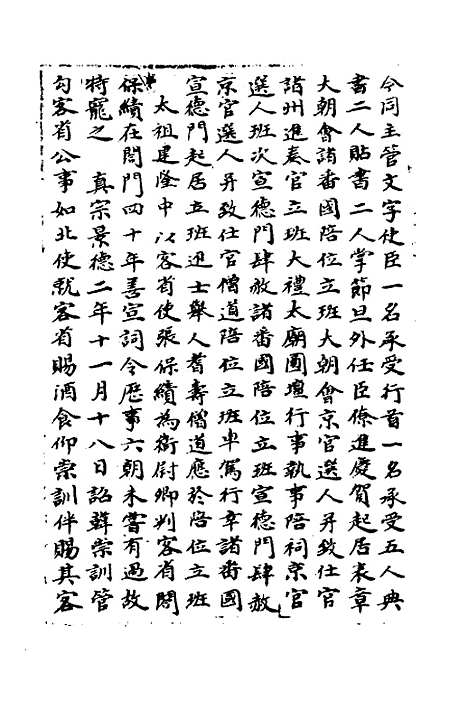 令同主管文字使臣一名承受行首一名承受五人典
書二人貼書二人掌節旦外任臣僚進慶賀起居表章
大朝會諸番國陪位立班大朝會京官選人并致仕官
諸州進奏官立班大禮太廟圓壇行事執事陪祠京官
選人班次宣德門肆赦諸番國陪位立班宣德門肆赦
京官選人并致仕官僧道陪位立班車駕行幸諸番國
宣德門起居立班進士舉人耆壽僧道應於陪位立班
太祖建隆中以客省使張保續為衛尉卿判客省閤
保續在閤門四十年善宣詞令歷事六朝未嘗有過故
特寵之 真宗景德二年十一月十八日詔韓崇訓管
勾客省公事如北使就客省賜酒食仰崇訓伴賜其客